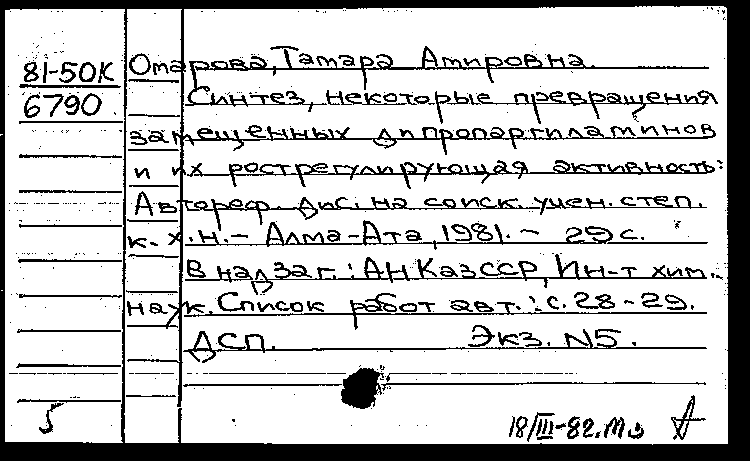 81-50К Омарова, Тамара Амировна.
6790 Синтез, некоторые превращения
замещенных дипропаргиламинов
и их рострегулирующая активность:
Автореф. дис. на соиск. учен. степ.
к. х. н. - Алма-Ата, 1981. - 29 с.
В надзаг.: АН КазССР, Ин-т хим.
наук. Список работ авт.: с. 28-29.
ДСП. Экз. N5.
5
18/III-82.